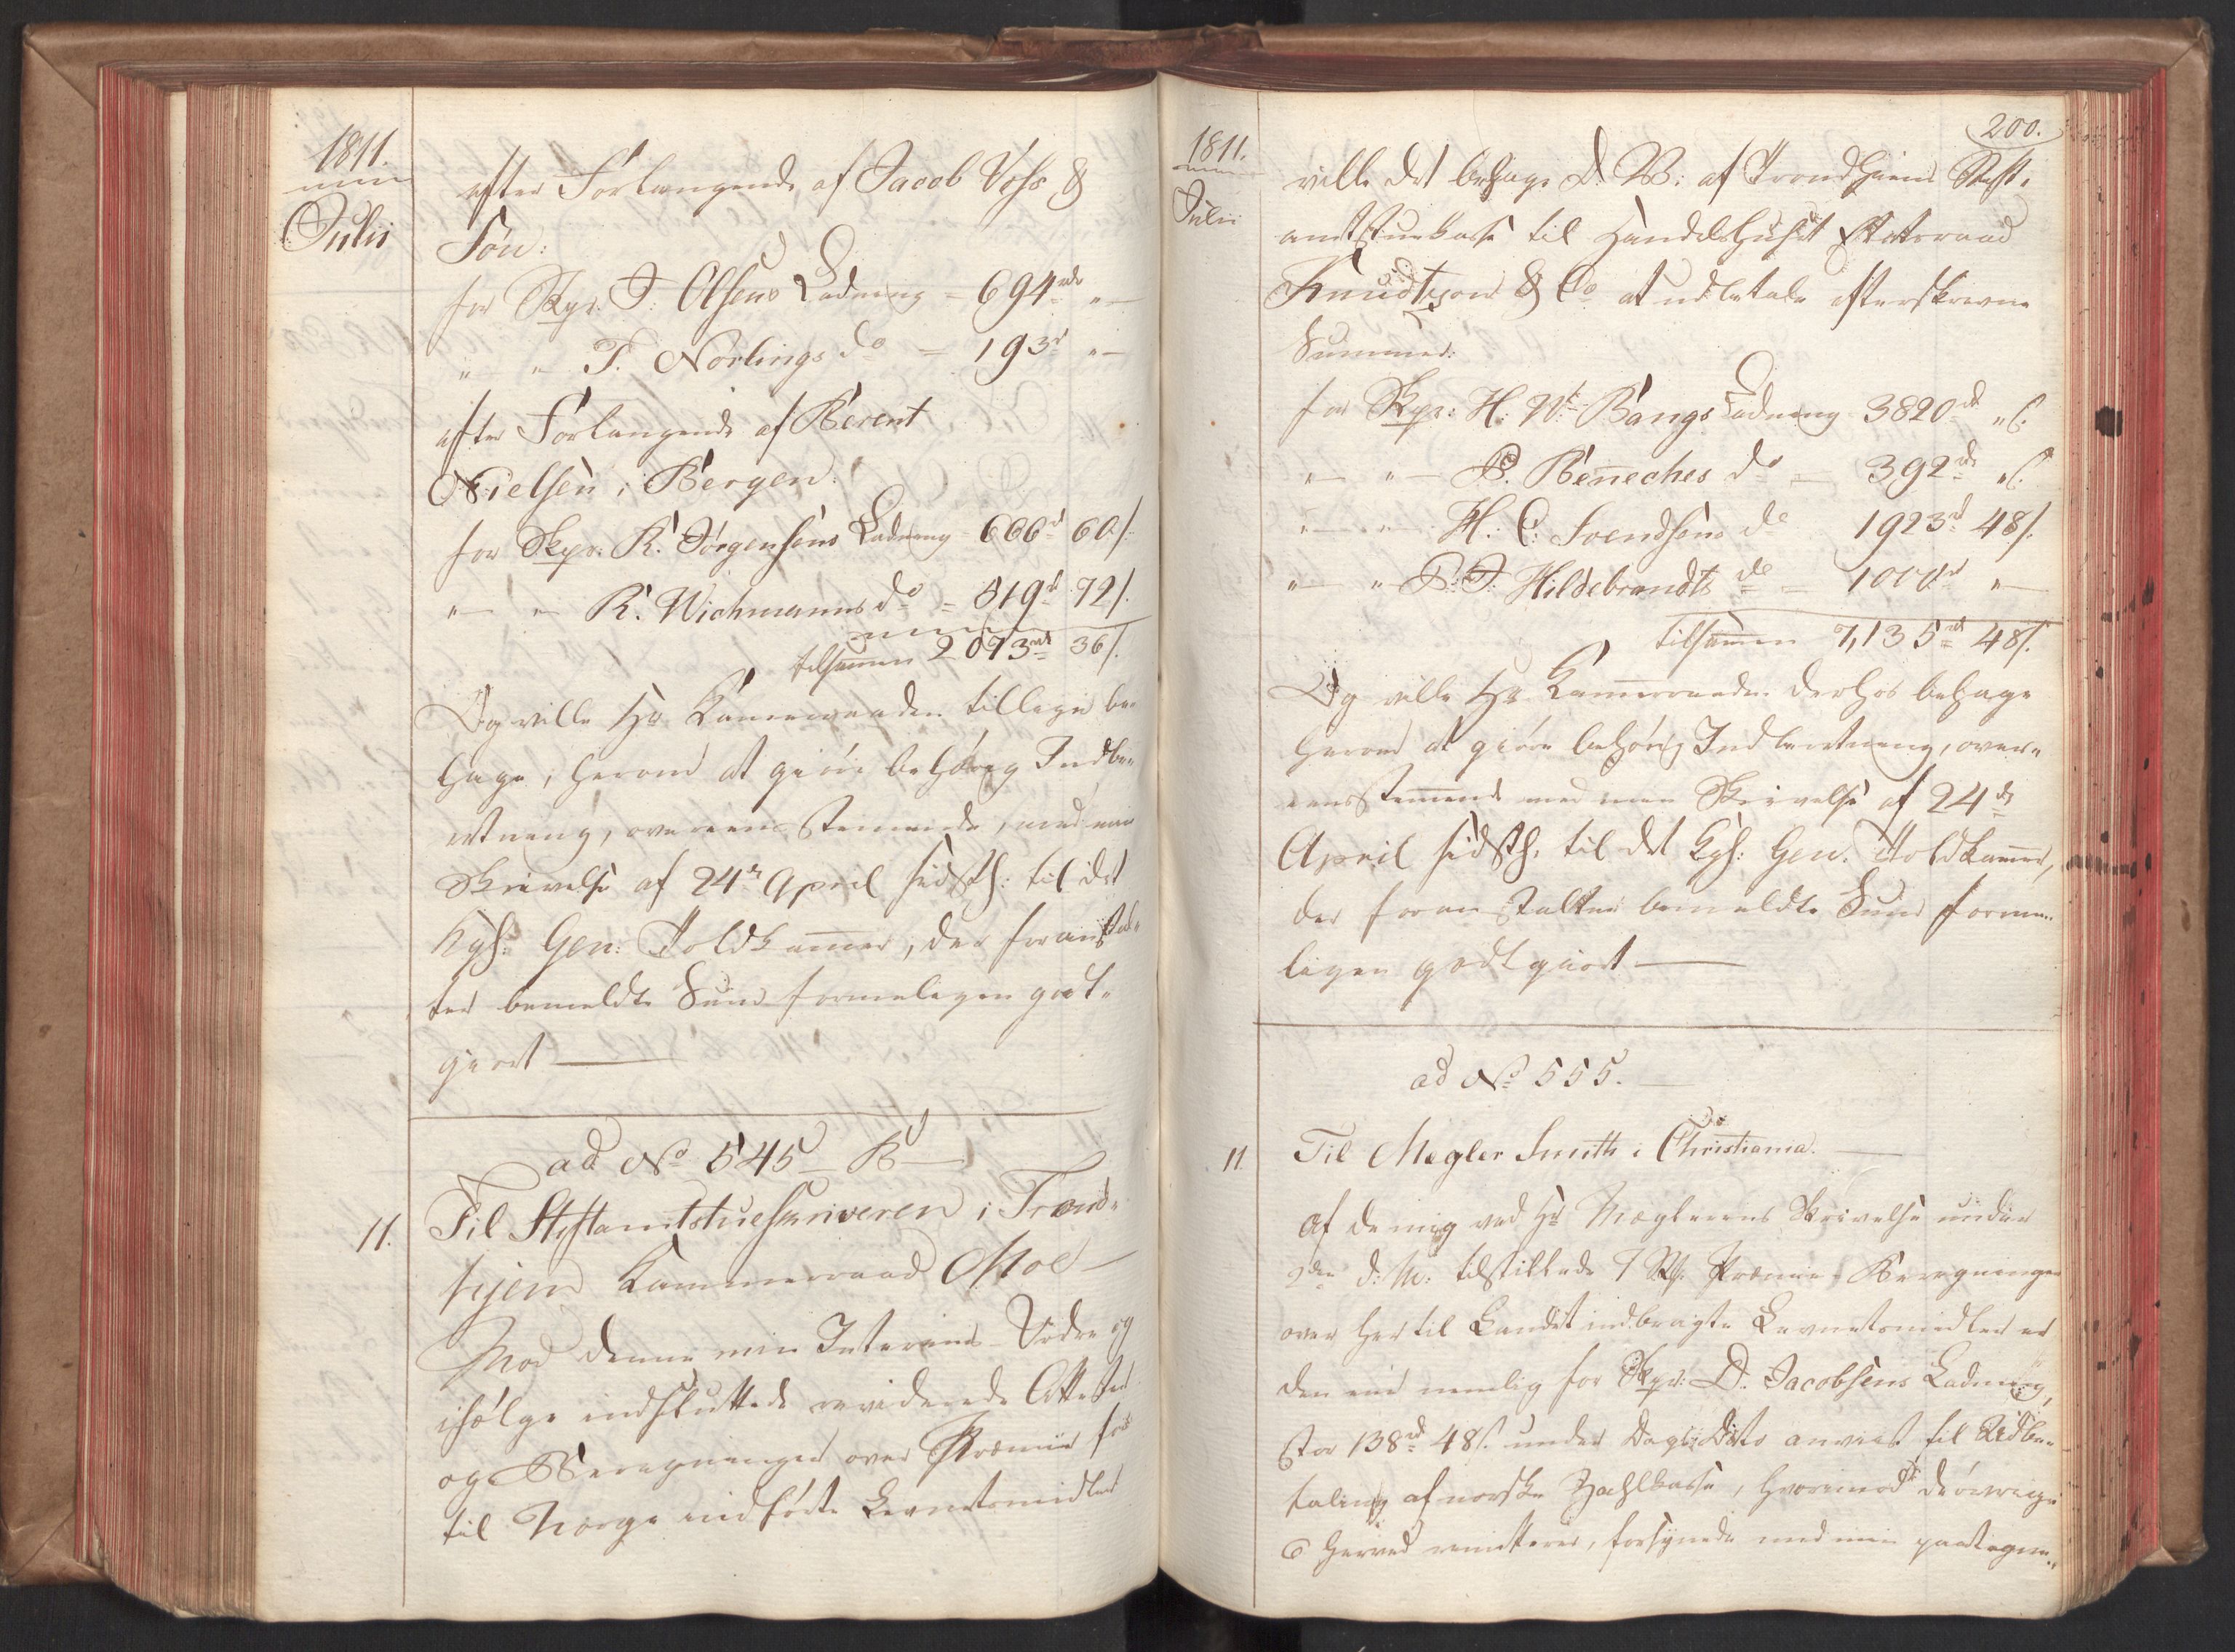 1811.
Julii
efter Forlangende af Jacob Vos &
Søn:
for Skpr. T. Olsens Ladning = 694 rd "—
" " T. Norlings do = 193 d "—
efter Forlangende af Berent
Nielsen i Bergen.
for Skpr: R. Jörgensens Ladning 666 d 60 s.
" " R. Wichmanns do = 519 d 72 s.
tilsammen 2073 rd 36 s.
Og ville Hr Kammerraaden tillige be-
hage, herom at giöre behörig Indbe-
retning, overeensstemmende med min
Skrivelse af 24de April sidstl: til det
Kgl: Gen: Toldkammer, der foranstal-
ter bemeldte Sum formeligen godt-
giort —
ad No 545 B
11.
Til Stiftamtstueskriveren i Trond-
hjem Kammerraad Moe —
Mod denne min Interims Ordre og
ifölge indsluttede reviderede Attester
og Beregninger over Præmie for
til Norge indförte Levnetsmidler
200.
1811.
Julii
ville det behage D: W: af Trondhiems Stift-
amtstuekasse til Handelshuset Statsraad
Knudtzon & Co at udbetale efterskrevne
Summer:
for Skpr: H: W: Bangs Ladning 3820 rd " s.
" " B. Beneches do — 392 rd " s.
" " H: C: Svendsens do 1923 d 48 s.
" " P: T: Hildebrandts do — 1000 d "—
tilsammen 7,135 rd 48 s.
Og ville Hr Kammerraaden derhos behage
herom at giöre behörig Indberetning, over-
eensstemmende med min Skrivelse af 24de
April sidstl. til det Kgl: Gen. Toldkammer,
der foranstalter bemeldte Sum forme-
ligen godtgiort —
ad No 555.
11.
Til Megler Smith i Christiania. —
Af de mig ved Hr Mæglerens Skrivelse under
2den d: M: tilstillede 7 St. Præmie-Beregninger
over her til Landet indbragte Levnetsmidler er
den ene nemlig for Skpr: D. Jacobsens Ladning,
stor 138 rd 48 s. under Dags Dato anviist til Udbe-
taling af norske Zahlkasse, hvorimod de övrige
6 herved remitteres, forsynede med min paategne-